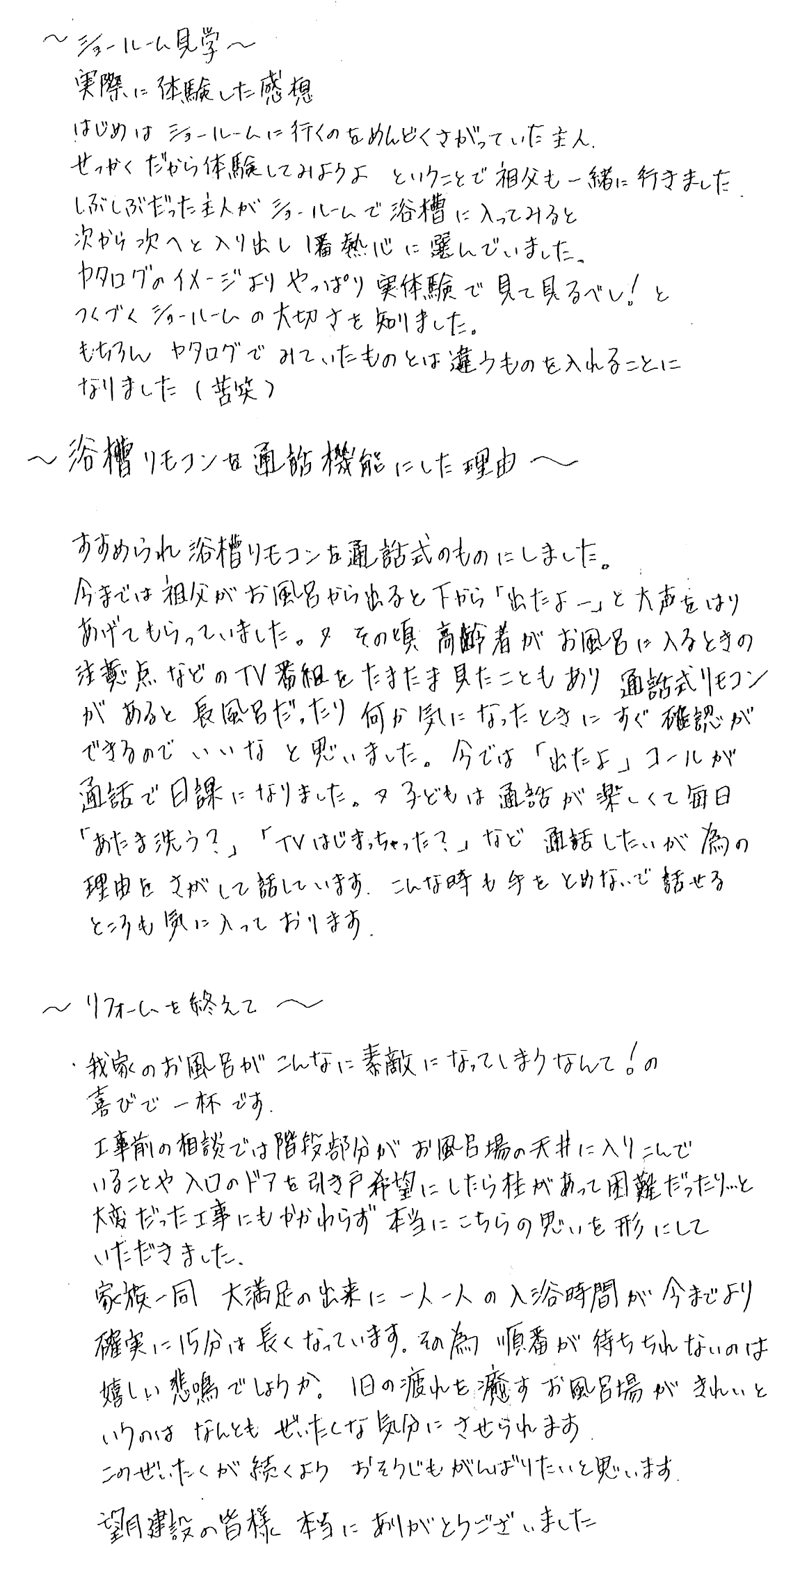 ～ショールーム見学～
実際に体験した感想
はじめは ショールームに行くのをめんどくさがっていた主人.
せっかくだから体験してみようよ ということで祖父も一緒に行きました.
しぶしぶだった主人が ショールームで浴槽に入ってみると
次から次へと入り出し 1番熱心に選んでいました。
カタログのイメージより やっぱり 実体験で見て見るべし!と
つくづく ショールームの大切さを知りました。
もちろん カタログでみていたものとは違うものを入れることに
なりました(苦笑)
～浴槽リモコンを通話機能にした理由～
すすめられ 浴槽リモコンを通話式のものにしました。
今までは祖父がお風呂から出ると下から「出たよー」と大声をはり
あげてもらっていました。又 その頃 高齢者が お風呂に入るときの
注意点などのTV番組をたまたま見たこともあり 通話式リモコン
が あると 長風呂だったり 何か気になったときに すぐ確認が
できるので いいな と思いました。今では「出たよ」コールが
通話で日課になりました。又 子どもは通話が楽しくて毎日
「あたま洗う?」「TVはじまっちゃった?」など 通話したいが為の
理由を さがして話しています. こんな時も手をとめないで話せる
ところも気に入っております.
～リフォームを終えて～
・我家のお風呂がこんなに素敵になってしまうなんて!の
喜びで一杯です.
工事前の相談では階段部分が お風呂場の天井に入りこんで
いることや 入口のドアを引き戸希望にしたら柱があって困難だったり…と
大変だった工事にもかかわらず 本当にこちらの思いを形にして
いただきました.
家族一同 大満足の出来に 一人一人の入浴時間が 今までより
確実に15分は長くなっています. その為 順番が待ちきれないのは
嬉しい悲鳴でしょうか。1日の疲れを癒すお風呂場が きれいと
いうのは なんとも ぜいたくな気分に させられます.
このぜいたくが続くよう おそうじもがんばりたいと思います.
望月建設の皆様 本当に ありがとうございました